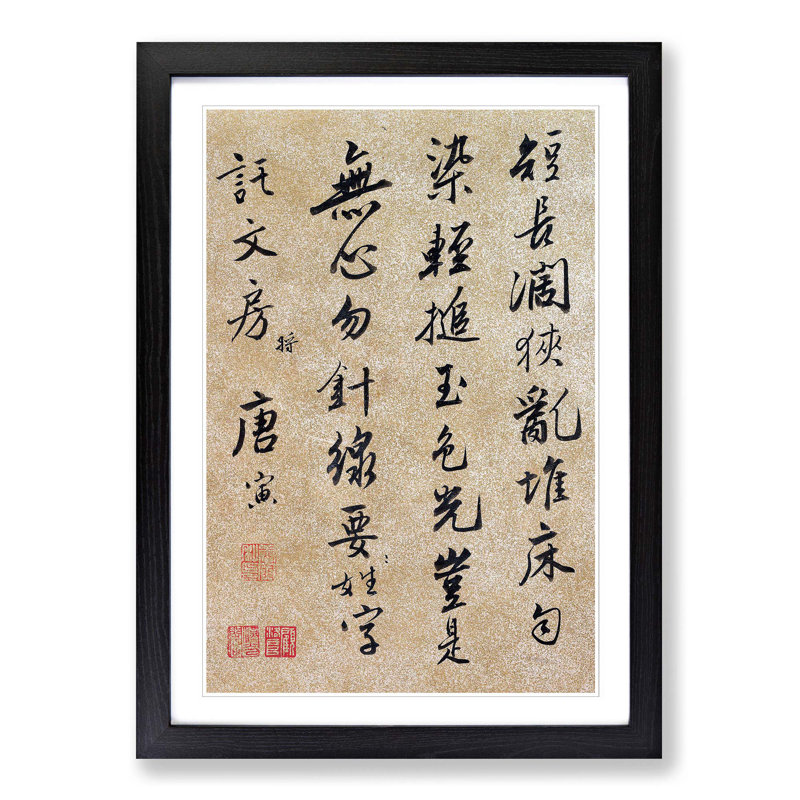 短長濶狹亂堆床匀
染輕搥玉色光豈是
無心勿針線要姓字
託文房 將 唐寅